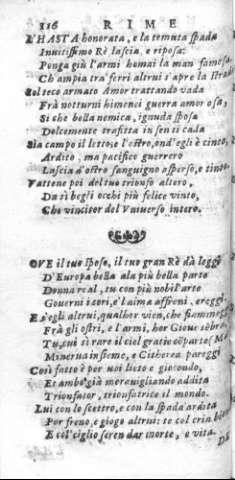 116 RIME
L'HASTA honorata, e la temuta spada
Inuitissimo Rè lascia, e riposa:
Ponga giù l'armi homai la man famosa
Ch'ampia tra' ferri altrui s'apre la strada
Sol teco armato Amor trattando vada
Frà notturni himenei guerra amorosa,
Si che bella nemica, ignuda sposa
Dolcemente trafitta in sen ti cada
Sia campo il letto: e l'ostro, ond'egli è cinto,
Ardito, ma pacifico guerrero
Lascia d'ostro sanguigno asperso, e tinto.
Vattene poi del tuo trionfo altero,
Da sì begli occhi più felice vinto,
Che vincitor del Vniuerso intero.
OVE il tuo sposo, il tuo gran Rè dà leggi
D'Europa bella a la più bella parte
Donna real, tu con più nobil'arte
Gouerni i cori, e l'alma affreni, e reggi.
E s'egli altrui, qualhor vien, che fiammeggi
Frà gli ostri, e l'armi, hor Gioue sembra,
Tu, cui sì rare il ciel gratie comparte
Minerua insieme, e Citherea pareggi
Così fatto è per voi lieto e giocondo,
Et ambo già merauigliando addita
Trionfator, trionfatrice il mondo.
Lui con lo scettro, e con la spada ardita
Por freno, e giogo altrui: te col crin
E col ciglio seren dar morte, e vita.